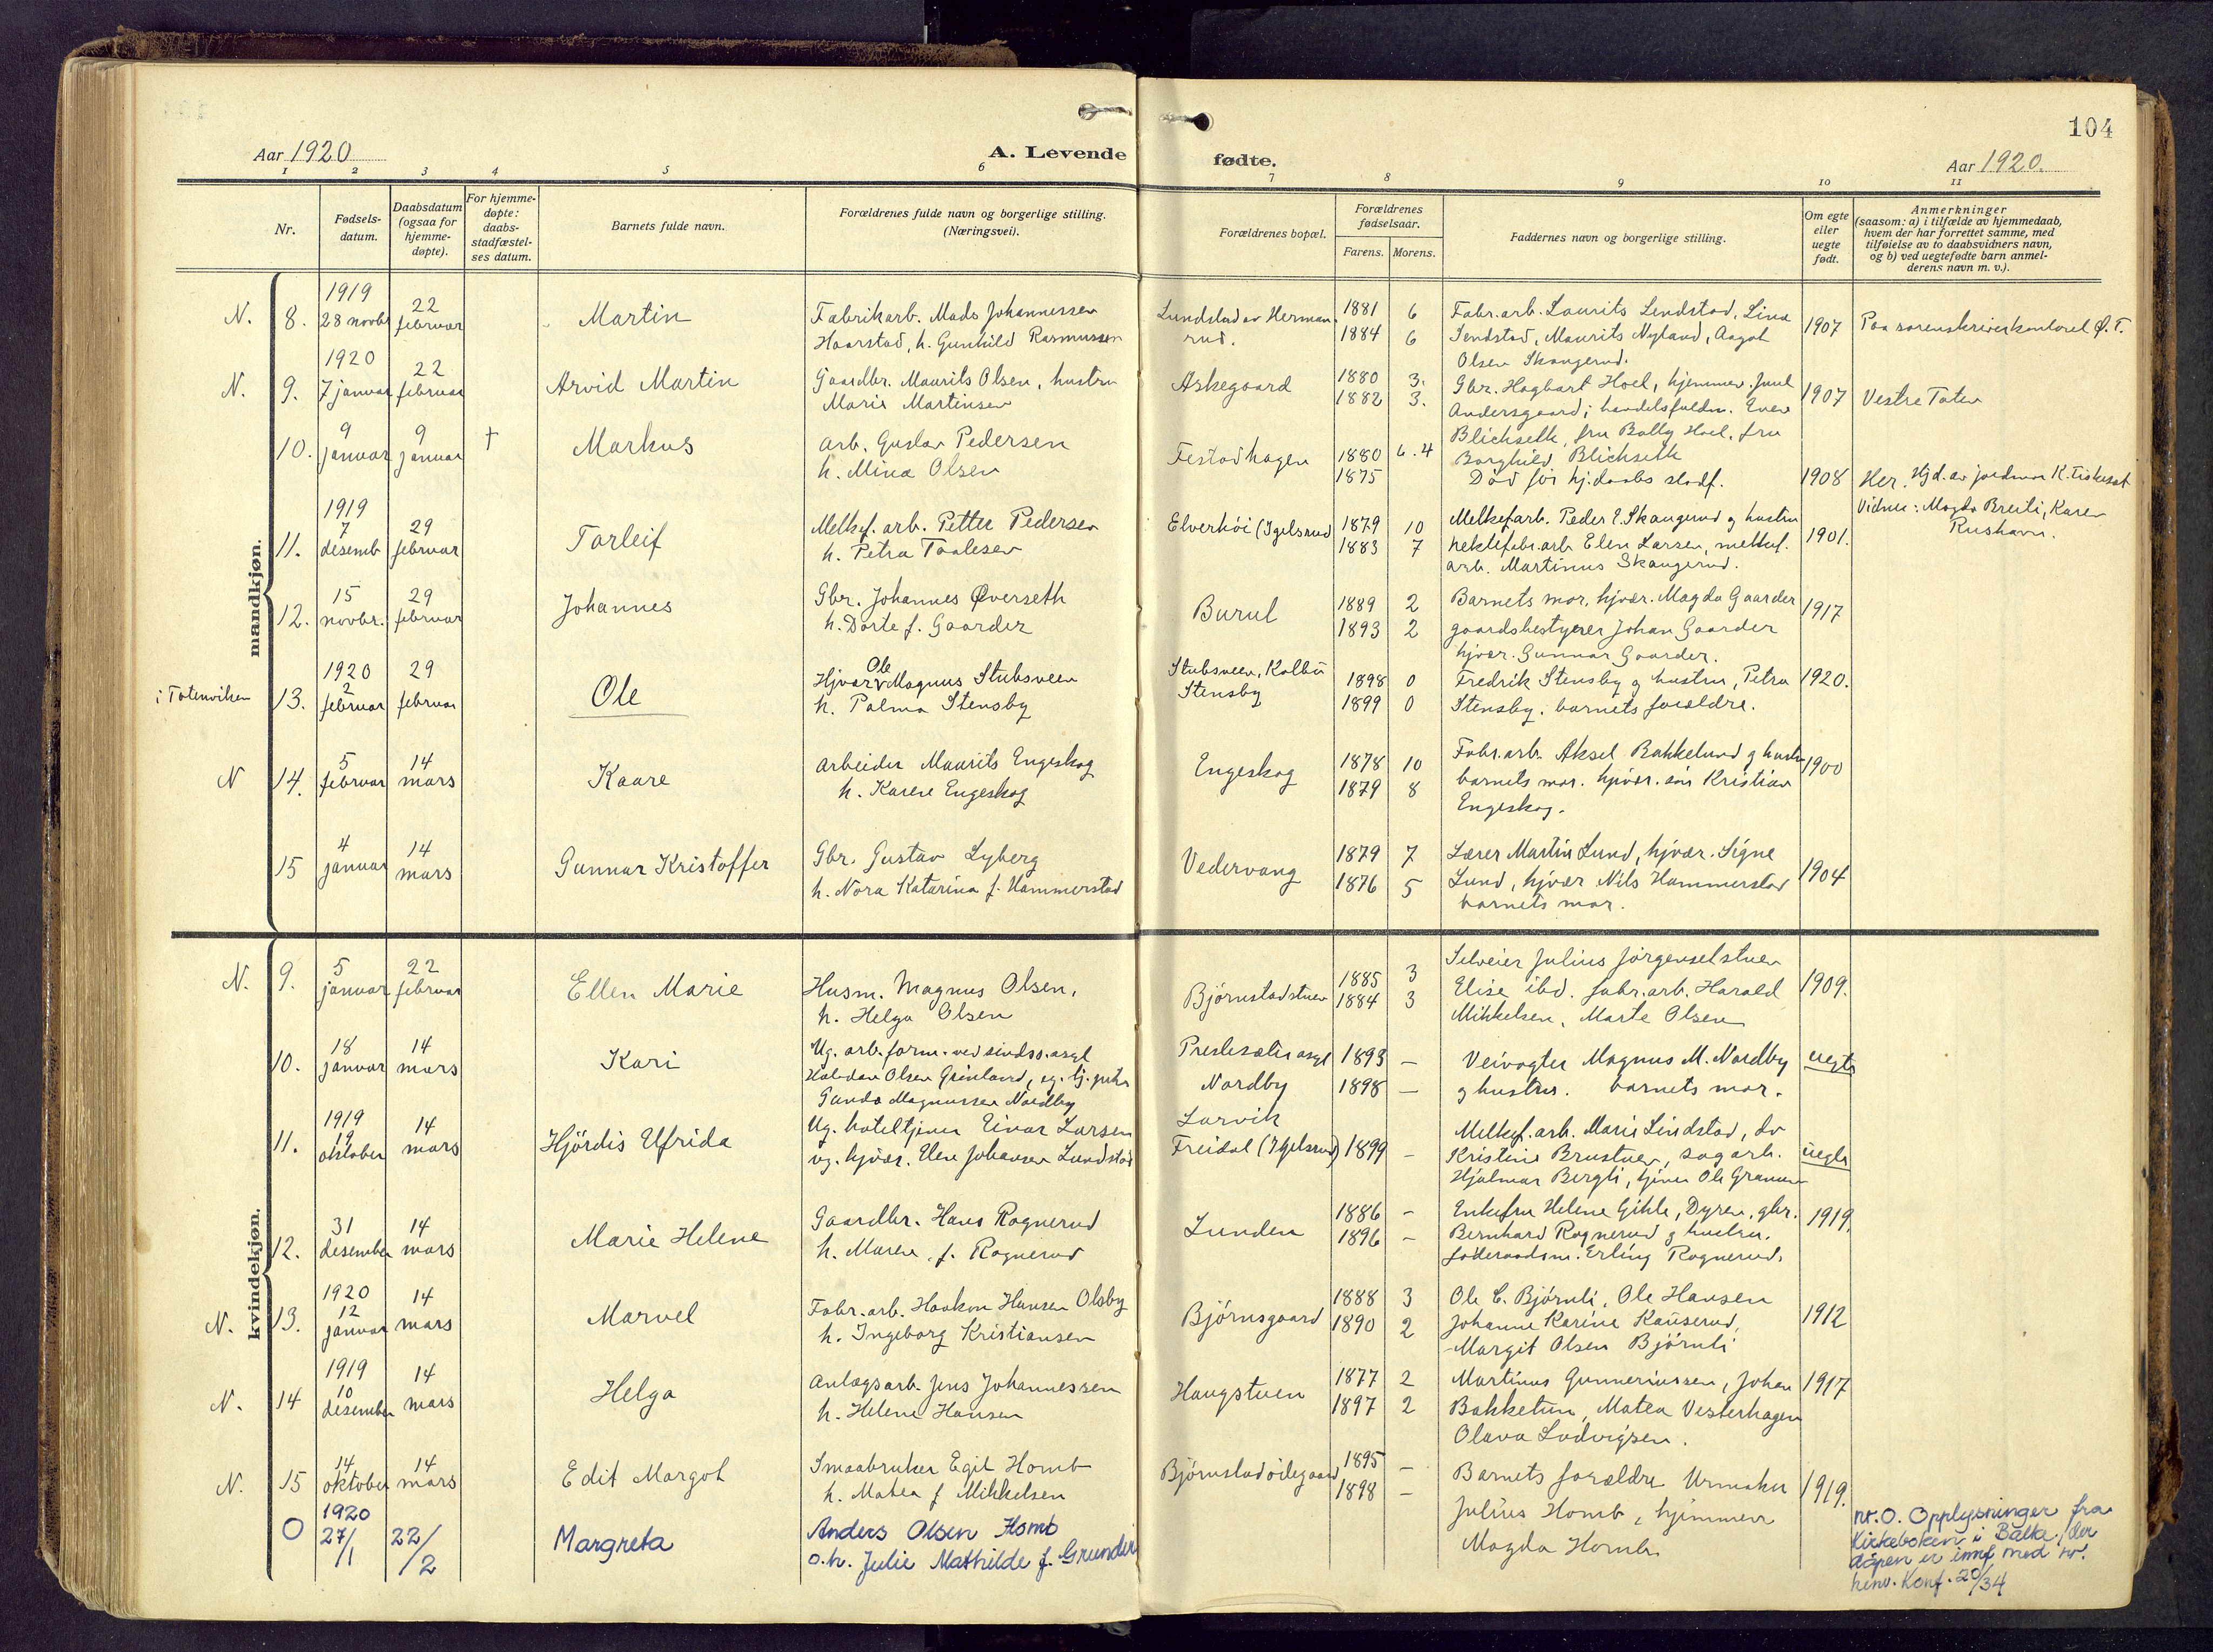 104
Aar 1920
A. Levende fødte.
Aar 1920.
1 2 3 4 5 6 7 8 9 10 11
Nr.
Fødsels-
datum.
Daabsdatum
(ogsaa for
hjemme-
døpte).
For hjemme-
døpte:
daabs-
stadfæstel-
ses datum.
Barnets fulde navn.
Forældrenes fulde navn og borgerlige stilling.
(Næringsvei).
Forældrenes bopæl.
Forældrenes
fødselsaar.
Farens. Morens.
Faddernes navn og borgerlige stilling.
Om egte
eller
uegte
født.
Anmerkninger
(saasom: a) i tilfælde av hjemmedaab,
hvem der har forrettet samme, med
tilføielse av to daabsvidners navn,
og b) ved uegtefødte barn anmel-
derens navn m. v.).
mandkjøn.
N. 8. 1919 28 novbr 22 februar Martin
Fabrikarb. Mads Johannessen
Haarstad, h. Gunhild Rasmussen
Lundstad av Herman
rud.
1881 6
1884 6
Fabr.arb. Laurits Lendstad, Lina
Sendstad, Maurits Nyland, Aagot
Olsen Skaugerud.
1907
Paa sorenskriverkontoret Ø. T.
N. 9. 1920 7 januar 22 februar Arvid Martin
Gaardbr. Maurits Olsen, hustru
Marie Martinsen
Askegaard
1880 3.
1882 3.
Gbr. Hagbart Hoel, hjemmev. Juul
Andersgaard; handelsfuldm. Even
Blichseth, fru Bolly Hoel, fru
Borghild Blichseth
1907
Vestre Toten
10. 9 januar 9 januar † Markus
arb. Gustav Pedersen
h. Mina Olsen
Festadhagen
1880 6.4
1875
Död för hj.daabs stadf.
1908
Her. Hjd. av jordmor K. Fiskeset
Vidner: Magda Breili, Karen
Rushavn.
11. 1919 7 desemb 29 februar Torleif
Melkef. arb. Petter Pedersen
h. Petra Taalesen
Elverhöi (Igelsrud
1879 10
1883 7
Melkefarb. Peder E. Skaugerud g hustru
hektefabr.arb Elen Larsen, melkef.
arb. Martinus Skaugerud.
1901.
12. 15 novbr. 29 februar Johannes
Gbr. Johannes Øverseth
h. Dorte f. Gaarder
Burul
1889 2
1893 2
Barnets mor, hjvær. Magda Gaarder
gaardsbestyrer Johan Gaarder
hjvær. Gunnar Gaarder.
1917
i Totenviken 13. 1920 2 februar 29 februar Ole
Hjvær. Ole Magnus Stubsveen
h. Palma Stensby
Stubsveen, Kolbu
Stensby
1898 0
1899 0
Fredrik Stensby g hustru, Petra
Stensby. barnets forældre.
1920.
N 14. 5 februar 14 mars Kaare
arbeider Maurits Engeskog
h. Karen Engeskog
Engeskog
1878 10
1879 8
Fabr.arb. Aksel Bakkelund g hustru
barnets mor. hjvær. sön Kristian
Engeskog.
1900
15 4 januar 14 mars Gunnar Kristoffer
Gbr. Gustav Lyberg
h. Nora Katarina f. Hammerstad
Vedervang
1879 7
1876 5
Lærer Martin Lund, hjvær. Signe
Lund, hjvær Nils Hammerstad
barnets mor.
1904
kvindekjøn.
N. 9. 5 januar 22 februar Ellen Marie
Husm. Magnus Olsen,
h. Helga Olsen
Björnstadstuen
1885 3
1884 3
Selveier Julius Jörgenselstuen
Elise ibd. fabr.arb. Harald
Mikkelsen, Marte Olsen
1909.
10. 18 januar 14 mars Kari
Ug. arb.form. ved sindss.asyl
Halvdan Olsen Grönland, ug. tj. pike
Ganda Magnussen Nordby
Presteseter asyl
Nordby
1893 –
1898 –
Veivogter Magnus M. Nordby
g hustru. barnets mor.
uegte
11. 1919 19 oktober 14 mars Hjördis Elfrida
Ug. hoteltjener Einar Larsen
ug. hjvær. Elen Johansen Lundstad
Larvik
Freidal (Igelsrud)
1899 –
Melkef. arb. Marie Lindstad, do
Kristine Brustuen, sagarb.
Hjalmar Bergli, tjener Ole Granum
uegte
12. 31 desember 14 mars Marie Helene
Gaardbr. Hans Rognerud
h. Maren, f. Rognerud
Lunden
1886 –
1896 –
Enkefru Helene Gihle, Dyren, gbr.
Bernhard Rognerud g hustru.
föderaadsm. Erling Rognerud.
1919.
N. 13. 1920 12 januar 14 mars Marvel
Fabr.arb. Haakon Hansen Olsby
h. Ingeborg Kristiansen
Björnsgaard
1888 3
1890 2
Ole C. Björnli, Ole Hansen
Johanne Karine Kauserud,
Margit Olsen Björnli
1912
N. 14 1919 10 desember 14 mars Helga
Anlægsarb. Jens Johannessen
h. Helene Hansen
Haugstuen
1877 2
1897 2
Martinus Gunneriussen, Johan
Bakketun, Matea Vesterhagen
Olava Ludvigsen.
1917
N. 15 14 oktober 14 mars Edit Margot
Smaabruker Egil Homb
h. Matea f Mikkelsen
Björnstadödegaard
1895 –
1898 –
Barnets forældre Urmaker
Julius Homb, hjemmev
Magda Homb.
1919.
O 1920 27/1 22/2 Margreta
Anders Olsen Homb
o.h. Julie Mathilde f. Grundvi
nr. O. Opplysninger fra
Kirkeboken i Balke, der
dåpen er innf med nr.
henv. Konf. 20/34